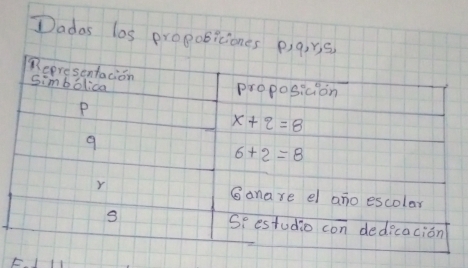 Dados los proposiciones p,q,r,s,
Representación
Simbólica
proposición
p
x + 2 = 8
q
6 + 2 = 8
r
Ganare el año escolar
s
Si estudio con dedicación